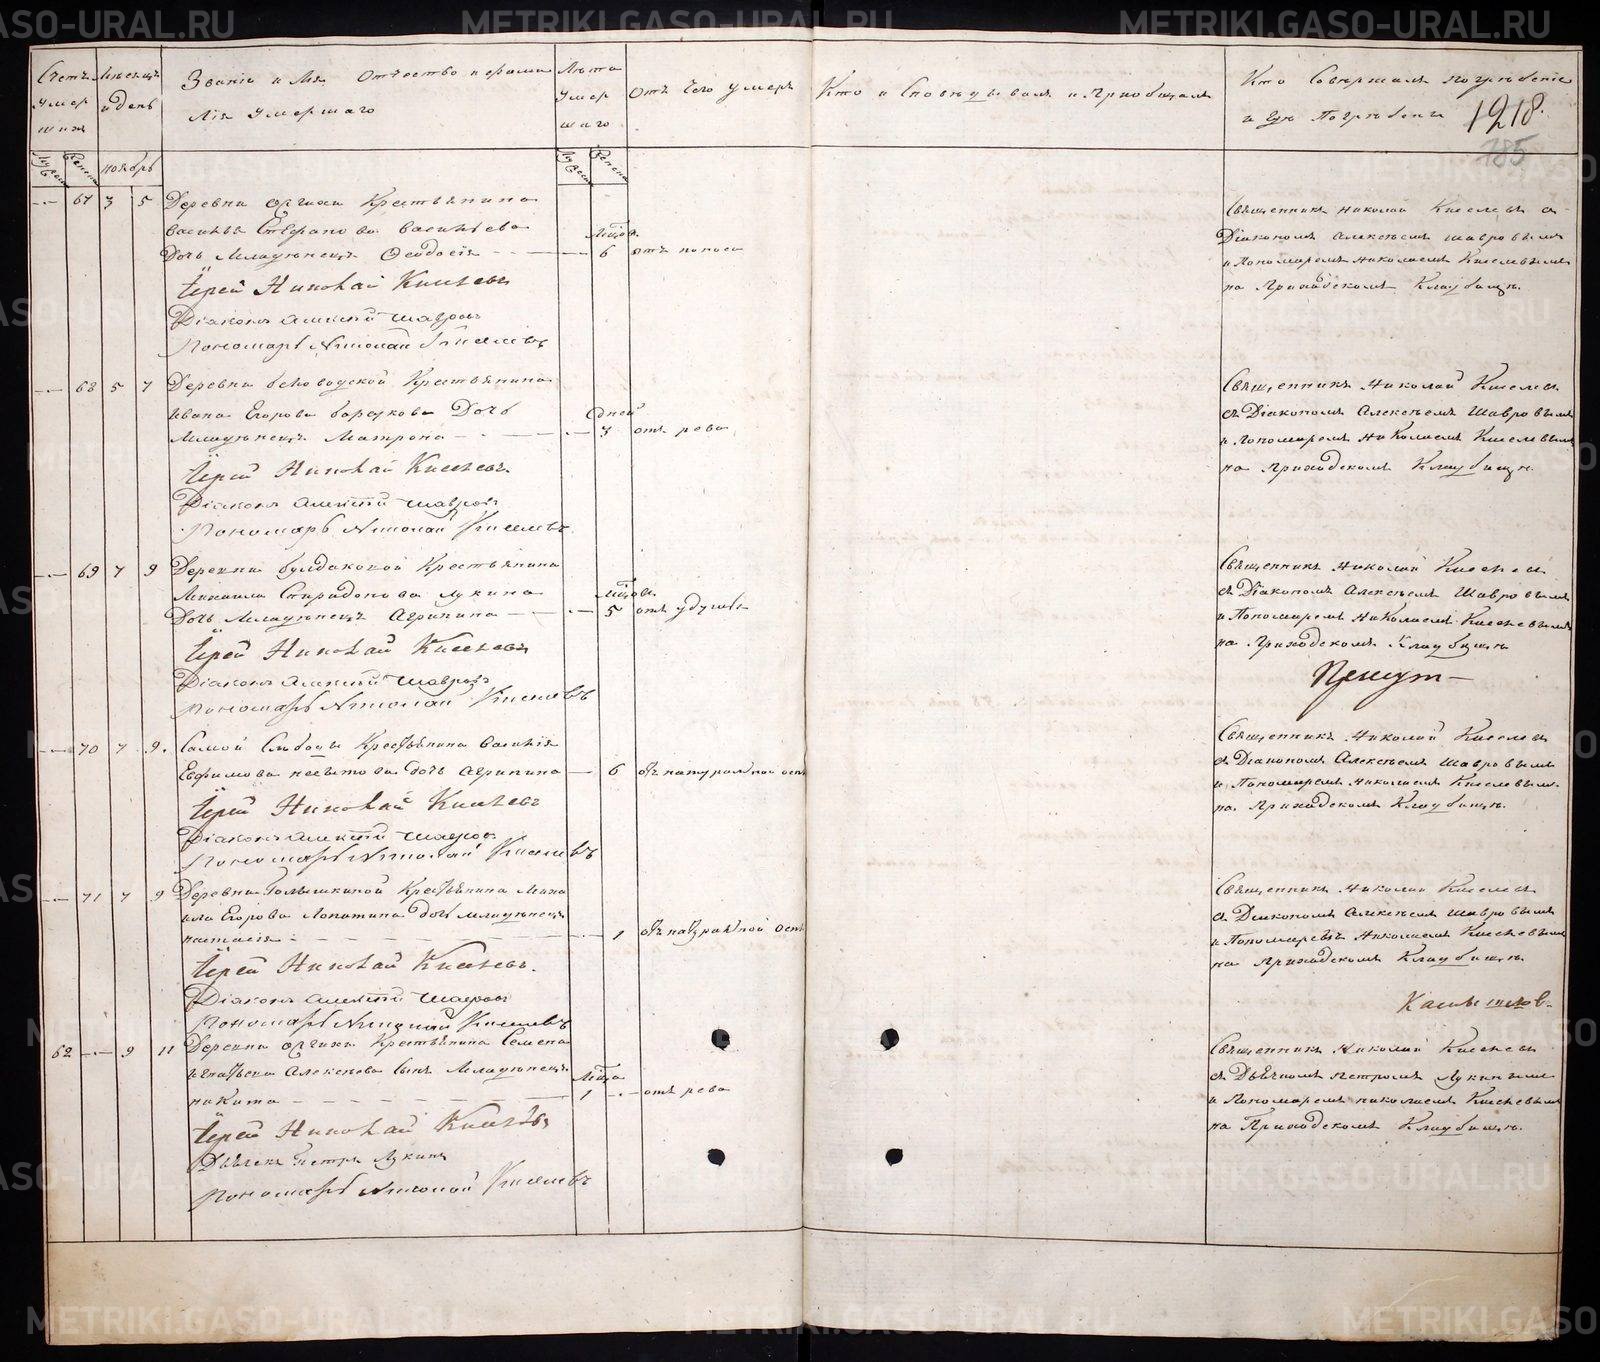 METRIKI.GASO-URAL.RU
Счетъ умершихъ
Мѣсяцъ и день
Званіе и Имя Отчество и фамилія умершаго
Лѣта умершаго
Отъ чего умеръ
Кто Исповѣдывалъ и Приобщалъ
Кто Совершалъ погребеніе
и гдѣ Погребены
1218.
185
ноябрь
67 3 5 Деревни Крестьянина
Василья Стефанова Васильева
Дочь Младенецъ Феодосія 6 отъ поноса
Іерей Николай Киселевъ
Діаконъ Алексѣй Шавровъ
Пономарь Николай Киселевъ
Священникъ Николай Киселевъ съ
Діакономъ Алексѣемъ Шавровымъ
и Пономаремъ Николаемъ Киселевымъ
на Приходскомъ Кладбищѣ.
68 5 7 Деревни Крестьянина
Ивана Егорова Дочь дней
Младенецъ Матрона 3 отъ рева
Іерей Николай Киселевъ
Діаконъ Алексѣй Шавровъ
Пономарь Николай Киселевъ
Священникъ Николай Киселевъ
съ Діакономъ Алексѣемъ Шавровымъ
и Пономаремъ Николаемъ Киселевымъ
на Приходскомъ Кладбищѣ.
69 7 9 Деревни Булдаковой Крестьянина
Михаила Спиридонова Лукина
Дочь Младенецъ Агрипина 5 отъ удушья
Іерей Николай Киселевъ
Діаконъ Алексѣй Шавровъ
Пономарь Николай Киселевъ
Священникъ Николай Киселевъ
съ Діакономъ Алексѣемъ Шавровымъ
и Пономаремъ Николаемъ Киселевымъ
на Приходскомъ Кладбищѣ
70 7 9. Самой Слободы Крестьянина Василія
Евфимова дочь Агрипина 6 отъ натуральной оспы
Іерей Николай Киселевъ
Діаконъ Алексѣй Шавровъ
Пономарь Николай Киселевъ
Священникъ Николай Киселевъ
съ Діакономъ Алексѣемъ Шавровымъ
и Пономаремъ Николаемъ Киселевымъ
на Приходскомъ Кладбищѣ.
71 7 9 Деревни Крестьянина Миха
ила Егорова Лопатина дочь младенецъ
настасія 1 отъ натуральной оспы
Іерей Николай Киселевъ.
Діаконъ Алексѣй Шавровъ
Пономарь Николай Киселевъ
Священникъ Николай Киселевъ
съ Діакономъ Алексѣемъ Шавровымъ
и Пономаремъ Николаемъ Киселевымъ
на Приходскомъ Кладбищѣ
62 9 11 Деревни Крестьянина Семена
Игнатьева Алексѣева сынъ Младенецъ
никита 1 отъ рева
Іерей Николай Киселевъ
Дьячекъ Петръ Лукинъ
Пономарь Николай Киселевъ
Священникъ Николай Киселевъ
съ Дьячкомъ Петромъ Лукинымъ
и Пономаремъ николаемъ Киселевымъ
на Приходскомъ Кладбищѣ.